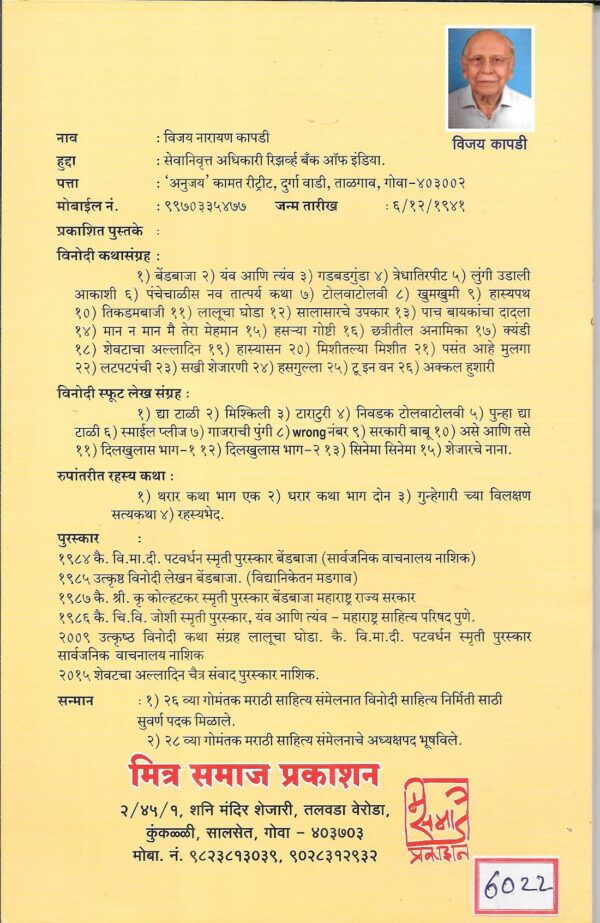 विजय कापडी
नाव : विजय नारायण कापडी
हुद्दा : सेवानिवृत्त अधिकारी रिझर्व्ह बँक ऑफ इंडिया.
पत्ता : ‘अनुजय’ कामत रीट्रीट, दुर्गा वाडी, ताळगाव, गोवा-४०३००२
मोबाईल नं. : ९९७०३३५४७७ जन्म तारीख : ६/१२/१९४१
प्रकाशित पुस्तके :
विनोदी कथासंग्रह :
१) बेंडबाजा २) यंव आणि त्यंव ३) गडबडगुंडा ४) त्रेधातिरपीट ५) लुंगी उडाली
आकाशी ६) पंचेचाळीस नव तात्पर्य कथा ७) टोलवाटोलवी ८) खुमखुमी ९) हास्यपथ
१०) तिकडमबाजी ११) लालूचा घोडा १२) सालासारचे उपकार १३) पाच बायकांचा दादला
१४) मान न मान मै तेरा मेहमान १५) हसऱ्या गोष्टी १६) छत्रीतील अनामिका १७) क्यंडी
१८) शेवटाचा अल्लादिन १९) हास्यासन २०) मिशीतल्या मिशीत २१) पसंत आहे मुलगा
२२) लटपटपंची २३) सखी शेजारणी २४) हसगुल्ला २५) टू इन वन २६) अक्कल हुशारी
विनोदी स्फूट लेख संग्रह :
१) द्या टाळी २) मिश्किली ३) टाराटुरी ४) निवडक टोलवाटोलवी ५) पुन्हा द्या
टाळी ६) स्माईल प्लीज ७) गाजराची पुंगी ८) wrong नंबर ९) सरकारी बाबू १०) असे आणि तसे
११) दिलखुलास भाग-१ १२) दिलखुलास भाग-२ १३) सिनेमा सिनेमा १५) शेजारचे नाना.
रुपांतरीत रहस्य कथा :
१) थरार कथा भाग एक २) धरार कथा भाग दोन ३) गुन्हेगारी च्या विलक्षण
सत्यकथा ४) रहस्यभेद.
पुरस्कार :
१९८४ कै. वि.मा.दी. पटवर्धन स्मृती पुरस्कार बेंडबाजा (सार्वजनिक वाचनालय नाशिक)
१९८५ उत्कृष्ठ विनोदी लेखन बेंडबाजा. (विद्यानिकेतन मडगाव)
१९८७ कै. श्री. कृ कोल्हटकर स्मृती पुरस्कार बेंडबाजा महाराष्ट्र राज्य सरकार
१९८६ कै. चि.वि. जोशी स्मृती पुरस्कार, यंव आणि त्यंव – महाराष्ट्र साहित्य परिषद पुणे.
२००९ उत्कृष्ठ विनोदी कथा संग्रह लालूचा घोडा. कै. वि.मा.दी. पटवर्धन स्मृती पुरस्कार
सार्वजनिक वाचनालय नाशिक
२०१५ शेवटचा अल्लादिन चैत्र संवाद पुरस्कार नाशिक.
सन्मान : १) २६ व्या गोमंतक मराठी साहित्य संमेलनात विनोदी साहित्य निर्मिती साठी
सुवर्ण पदक मिळाले.
२) २८ व्या गोमंतक मराठी साहित्य संमेलनाचे अध्यक्षपद भूषविले.
मित्र समाज प्रकाशन
२/४५/१, शनि मंदिर शेजारी, तलवडा वेरोडा,
कुंकळ्ळी, सालसेत, गोवा – ४०३७०३
मोबा. नं. ९८२३८१३०३९, ९०२८३१२९३२
मित्र
समाज
प्रकाशन
6022